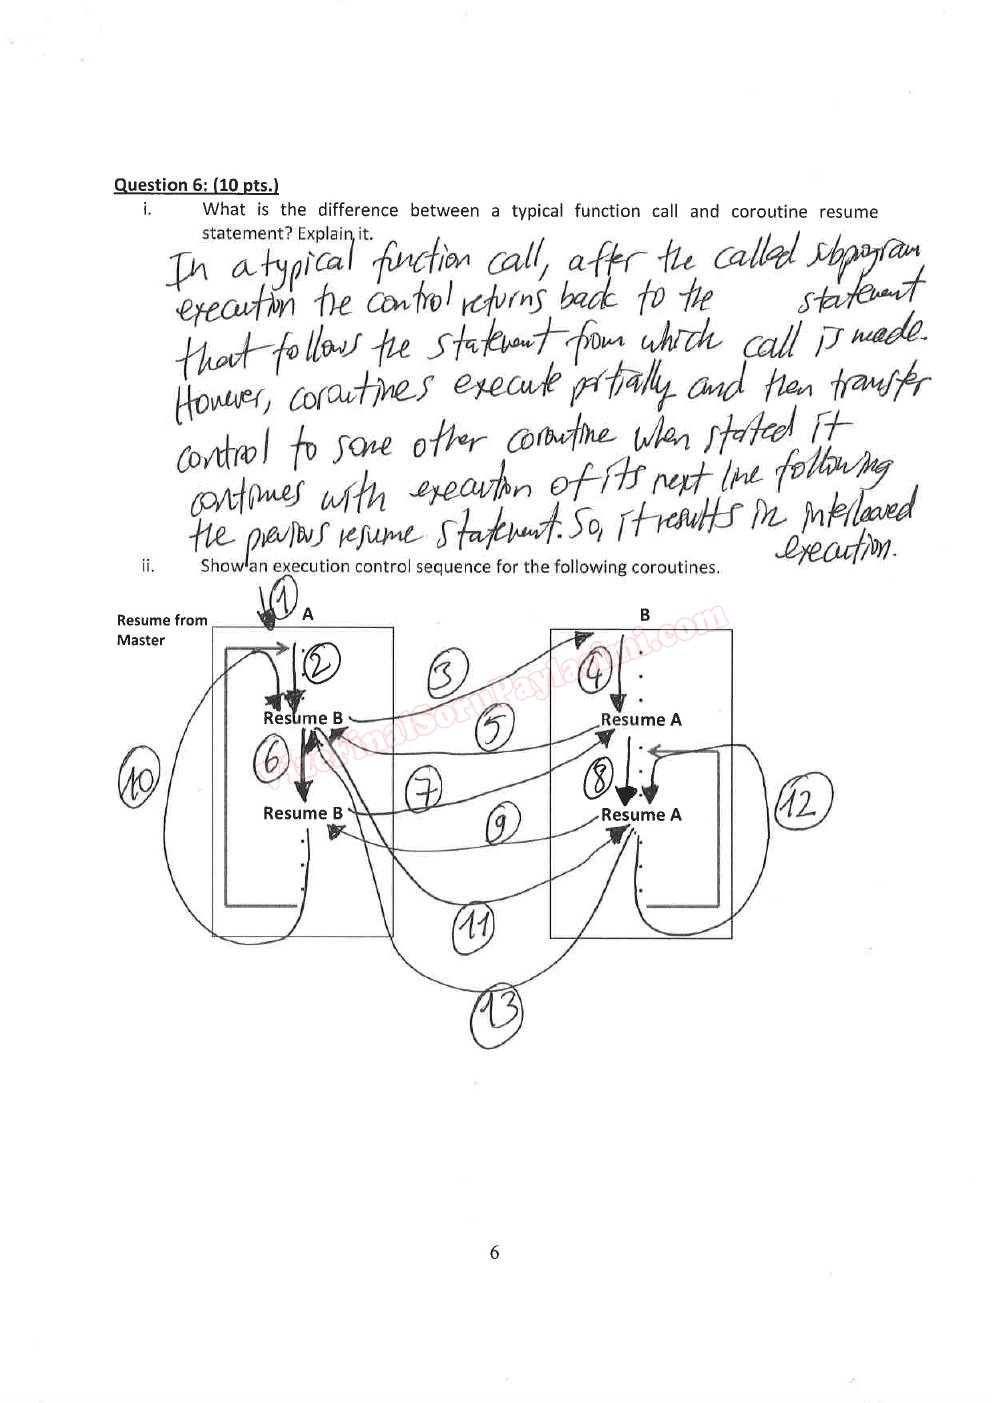 Question 6: (10 pts.)
i. What is the difference between a typical function call and coroutine resume
statement? Explain it.
In a typical function call, after the called sbprogram
execution the control returns back to the statement
that follows the statement from which call is made.
However, coroutines execute prtially and then transfer
control to some other coroutine when stated it
continues with execution of its next line following
the previous resume statement. So, it results in interleaved
execution.
ii. Show an execution control sequence for the following coroutines.
1
Resume from
Master
A
B
2
3
4
Resume B
5
Resume A
6
7
8
10
12
Resume B
9
Resume A
11
13
VizeFinalSoruPaylasimi.com
6